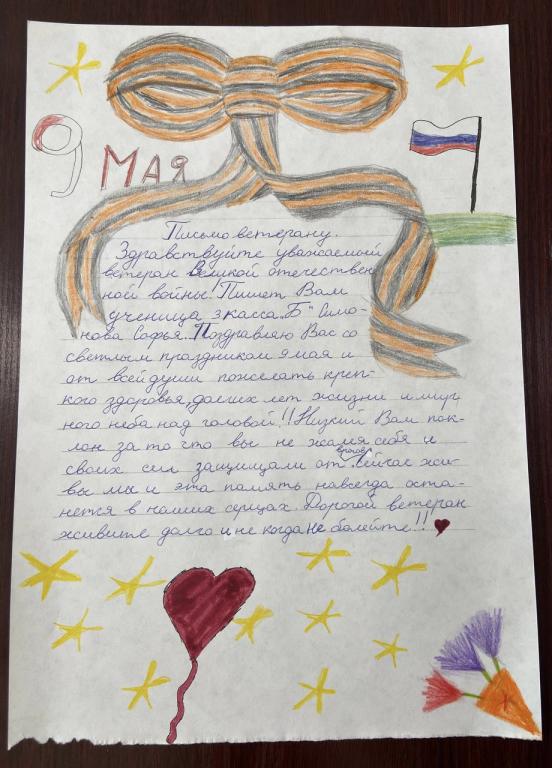 9 МАЯ
Письмо ветерану.
Здравствуйте уважаемый
ветеран Великой отечествен
ной войны! Пишет Вам
ученица 3 касса „Б" Симо-
нова Софья. Поздравляю Вас со
светлым праздником 9 мая и
от всей души пожелать креп-
кого здоровья, долгих лет жизни и мир
ного неба над головой!! Низкий Вам пок-
лон за то что вы не жалея себя и
своих сил защищали от врагов. Сейчас жи-
вы мы и эта память навсегда оста-
нется в наших серцах. Дорогой ветеран
живите долго и не когда не болейте!!